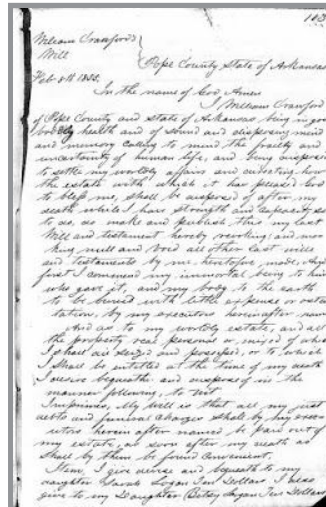 103
William Crawford's
Will
Pope County State of Arkansas
Feb 8th 1855.
In the name of God Amen
I William Crawford
of Pope County and State of Arkansas being in good
bodily health and of sound and disposing mind
and memory calling to mind the frailty and
uncertainty of human life, and being disposed
to settle my worldly affairs and directing how
the estate with which it has pleased God
to bless me, shall be disposed of after my
death while I have strength and capacity so
to do, do make and publish this my last
Will and testament hereby revoking and mak
king null and void all other last wills
and testaments by me heretofore made. And
first I commend my immortal being to him
who gave it, and my body to the earth
to be buried with little expense or osten
tation, by my executors hereinafter named
And as to my worldly estate, and all
the property real personal or mixed of which
I shall die seized and possessed, or to which
I shall be entitled at the time of my death
I devise bequeath and dispose of in the
manner following, to wit
Imprimis, My Will is that all my just
debts and funeral charges shall by my exec
utors herein after named be paid out of
my estate, as soon after my death as
shall by them be found convenient.
Item, I give devise and bequeath to my
daughter Sarah Logan Ten Dollars I also
give to my Daughter Betsy Logan Ten Dollars